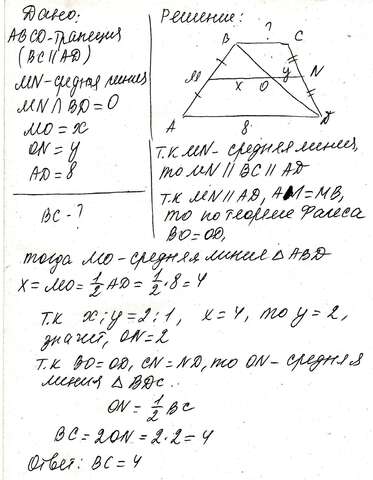 Дано:
ABCD-трапеция
(BC∥AD)
MN-средняя линия
MN∩BD=O
MO=x
ON=y
AD=8
BC-?
Решение:
?
B
C
M
x
O
y
N
A
8
D
т.к MN- средняя линия,
то MN∥BC∥AD
т.к MN∥AD, AM=MB,
то по теореме Фалеса
BO=OD,
тогда MO-средняя линия △ABD
x=MO=1/2 AD=1/2·8=4
т.к x:y=2:1, x=4, то y=2,
значит, ON=2
т.к BO=OD, CN=ND, то ON-средняя
линия △BDC.
ON=1/2 BC
BC=2ON=2·2=4
Ответ: BC=4